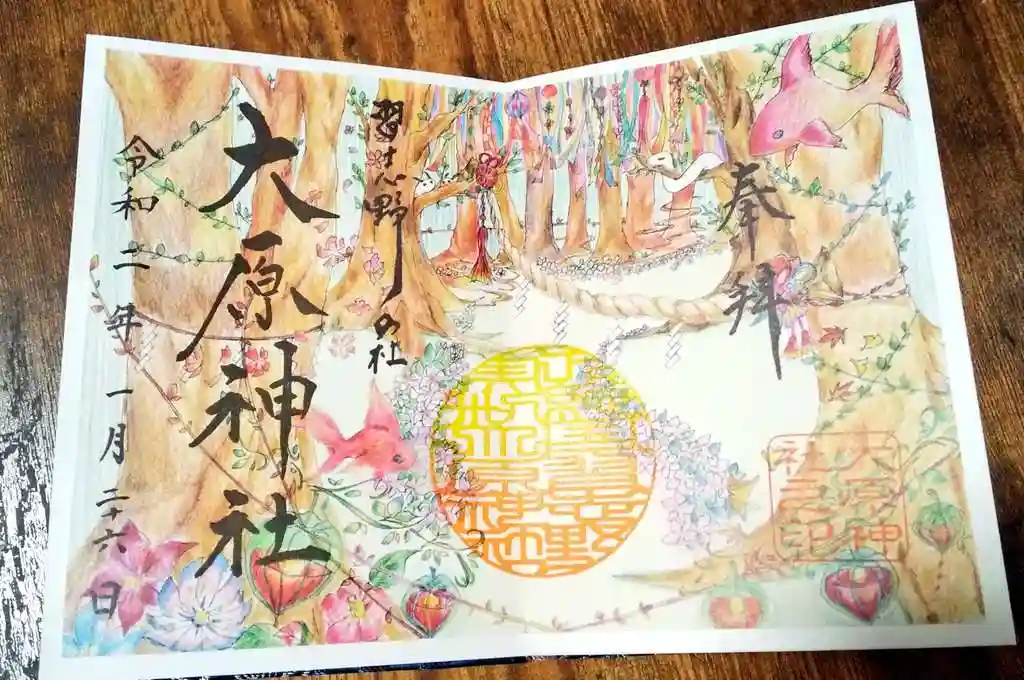 奉拝
習志野の社
大原神社
令和二年一月二十六日
大原神
社之印